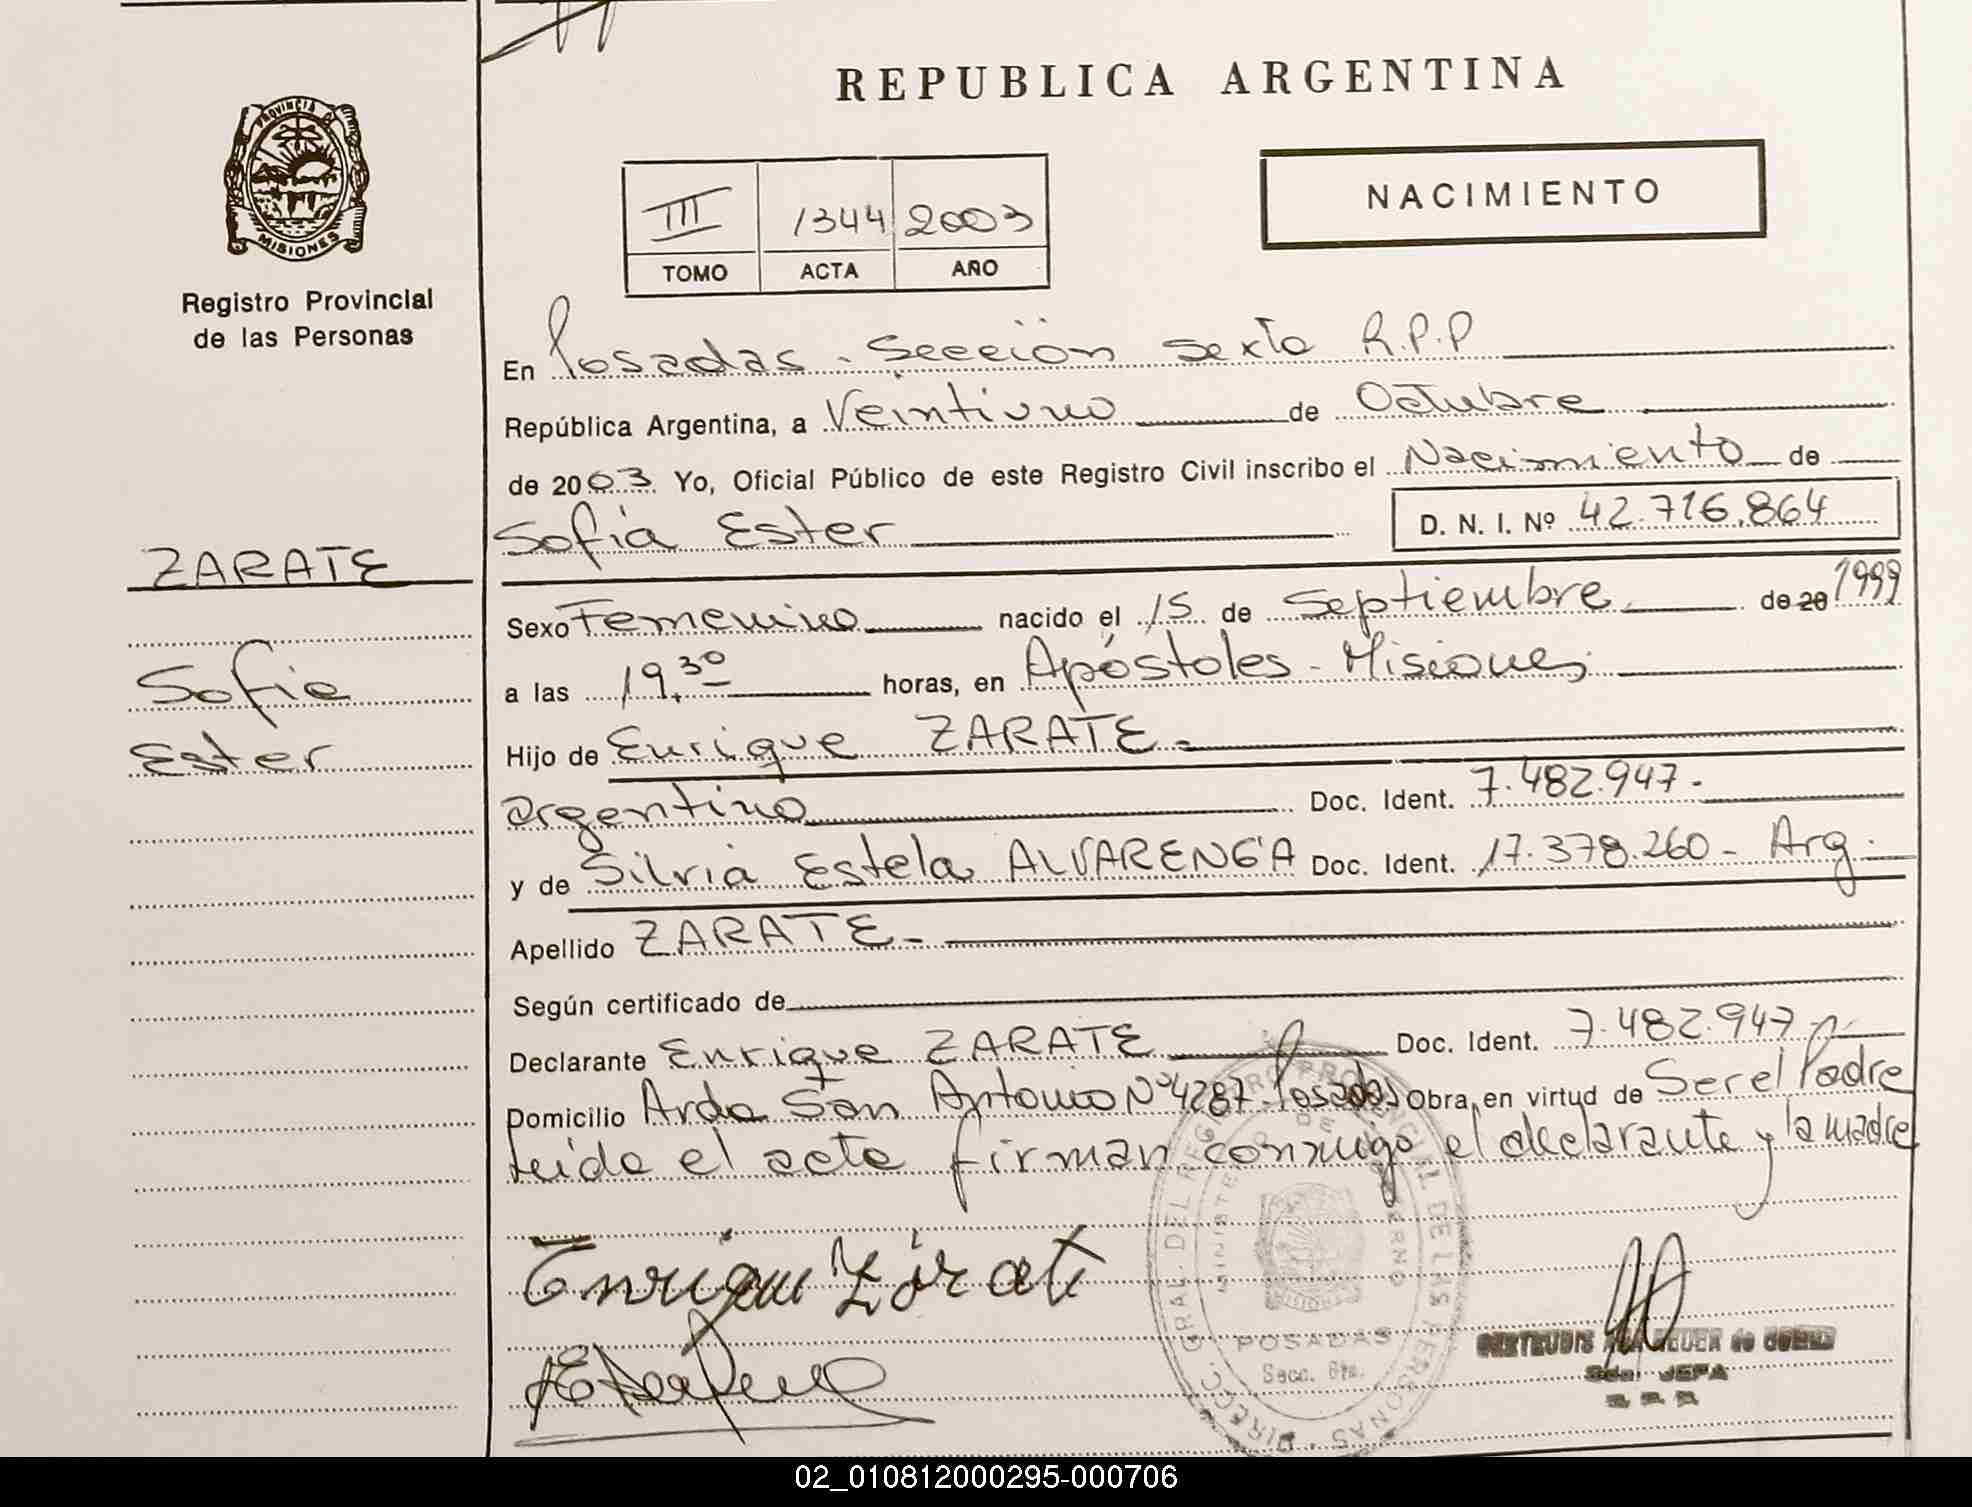 REPUBLICA ARGENTINA
PROVINCIA DE
MISIONES
Registro Provincial
de las Personas
NACIMIENTO
III 1344 2003
TOMO ACTA AÑO
En Posadas - Sección Sexta R.P.P
República Argentina, a Veintiuno de Octubre
de 2003 Yo, Oficial Público de este Registro Civil inscribo el Nacimiento de
Sofia Ester D. N. I. Nº 42.716.864
ZARATE
Sofia
Ester
Sexo Femenino nacido el 15 de Septiembre de 20 1999
a las 19.30 horas, en Apóstoles - Misiones
Hijo de Enrique ZARATE -
argentino Doc. Ident. 7.482.947 -
y de Silvia Estela ALVARENGA Doc. Ident. 17.378.260 - Arg.
Apellido ZARATE -
Según certificado de
Declarante Enrique ZARATE Doc. Ident. 7.482.947 -
Domicilio Avda San Antonio Nº 4287 - Posadas Obra, en virtud de Ser el Padre
Leida el acta firman conmigo el declarante y la madre
Enrique Zárate
DIREC. GRAL. DEL REGISTRO PROVINCIAL DE LAS PERSONAS
MINISTERIO DE GOBIERNO
POSADAS
Secc. 6ta.
JEFA
02_010812000295-000706